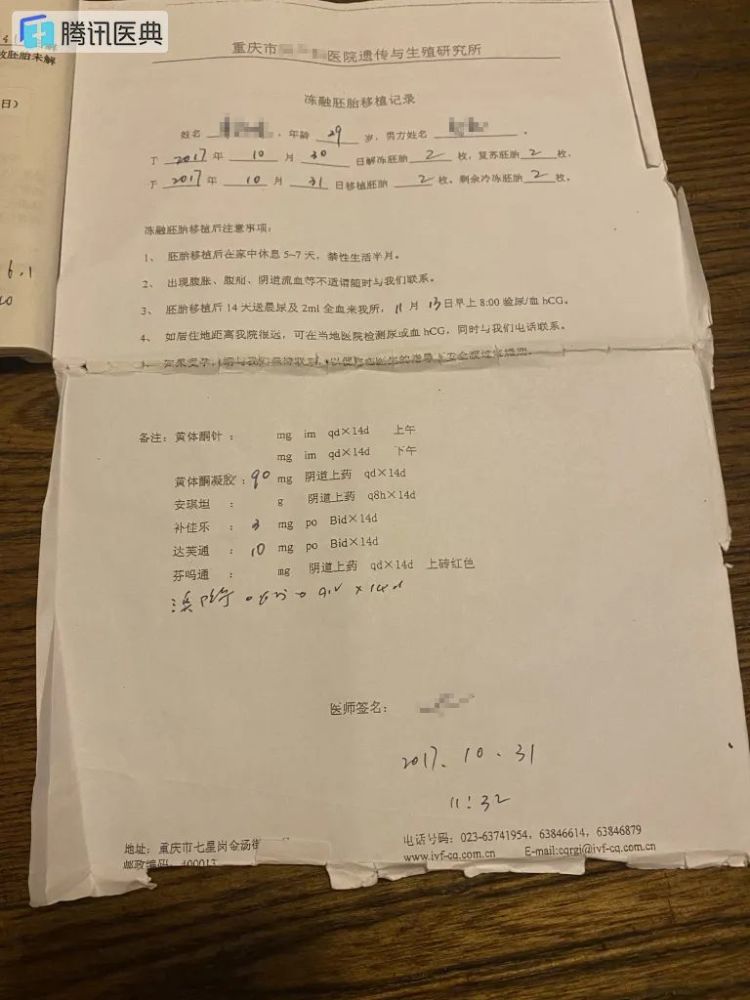 腾讯医典
日）
6.1
重庆市 医院遗传与生殖研究所
冻融胚胎移植记录
姓名 ，年龄 29 岁，男方姓名 。
于 2017 年 10 月 30 日解冻胚胎 2 枚，复苏胚胎 2 枚，
于 2017 年 10 月 31 日移植胚胎 2 枚，剩余冷冻胚胎 2 枚。
冻融胚胎移植后注意事项：
1、 胚胎移植后在家中休息 5~7 天，禁性生活半月。
2、 出现腹胀、腹泻、阴道流血等不适请随时与我们联系。
3、 胚胎移植后 14 天送晨尿及 2ml 全血来我所， 11 月 13 日早上 8:00 验尿/血 hCG。
4、 如居住地距离我院很远，可在当地医院检测尿或血 hCG，同时与我们电话联系。
备注：黄体酮针 ： mg im qd×14d 上午
mg im qd×14d 下午
黄体酮凝胶：90 mg 阴道上药 qd×14d
安琪坦 ： g 阴道上药 q8h×14d
补佳乐 ： 3 mg po Bid×14d
达芙通 ： 10 mg po Bid×14d
芬吗通 ： mg 阴道上药 qd×14d 上砖红色
医师签名：
2017. 10. 31
11:32
地址：重庆市七星岗金汤街
邮政编码：400013
电话号码：023-63741954，63846614，63846879
www.ivf-cq.com.cn E-mail:cqrgi@ivf-cq.com.cn